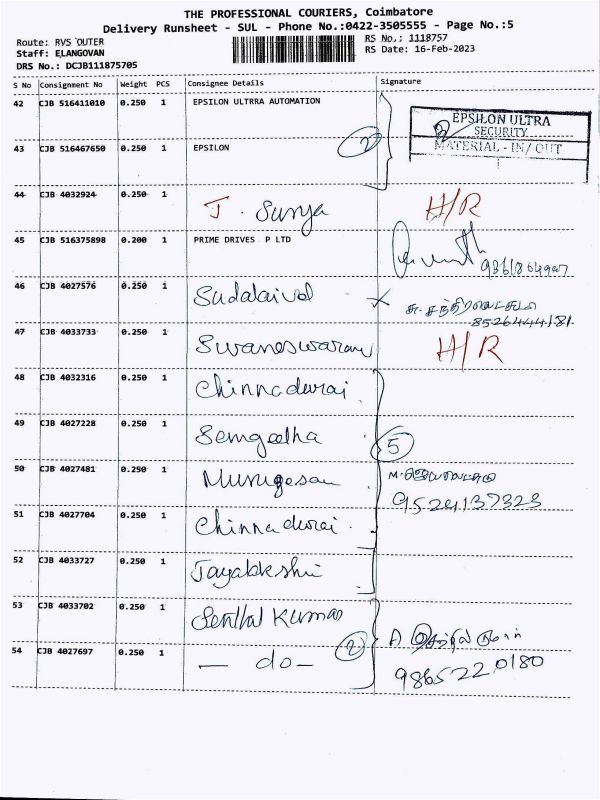 THE PROFESSIONAL COURIERS, Coimbatore
Delivery Runsheet - SUL - Phone No.:0422-3505555 - Page No.:5
Route: RVS OUTER
RS No.: 1118757
Staff: ELANGOVAN
RS Date: 16-Feb-2023
DRS No.: DCJB111875705
S No Consignment No Weight PCS Consignee Details Signature
42 CJB 516411010 0.250 1 EPSILON ULTRRA AUTOMATION
EPSILON ULTRA
SECURITY
MATERIAL - IN/OUT
43 CJB 516467650 0.250 1 EPSILON 2
44 CJB 4032924 0.250 1 J. Surya H/R
45 CJB 516375898 0.200 1 PRIME DRIVES P LTD
46 CJB 4027576 0.250 1 Sudalaivel
8526444181
47 CJB 4033733 0.250 1 Swaneswaran H/R
48 CJB 4032316 0.250 1 Chinnadurai
49 CJB 4027228 0.250 1 Semgeetha 5
50 CJB 4027481 0.250 1 Murugesan
9524137323
51 CJB 4027704 0.250 1 Chinnadurai
52 CJB 4033727 0.250 1
53 CJB 4033702 0.250 1 Senthil Kumar
54 CJB 4027697 0.250 1 - do - 2
9865220180